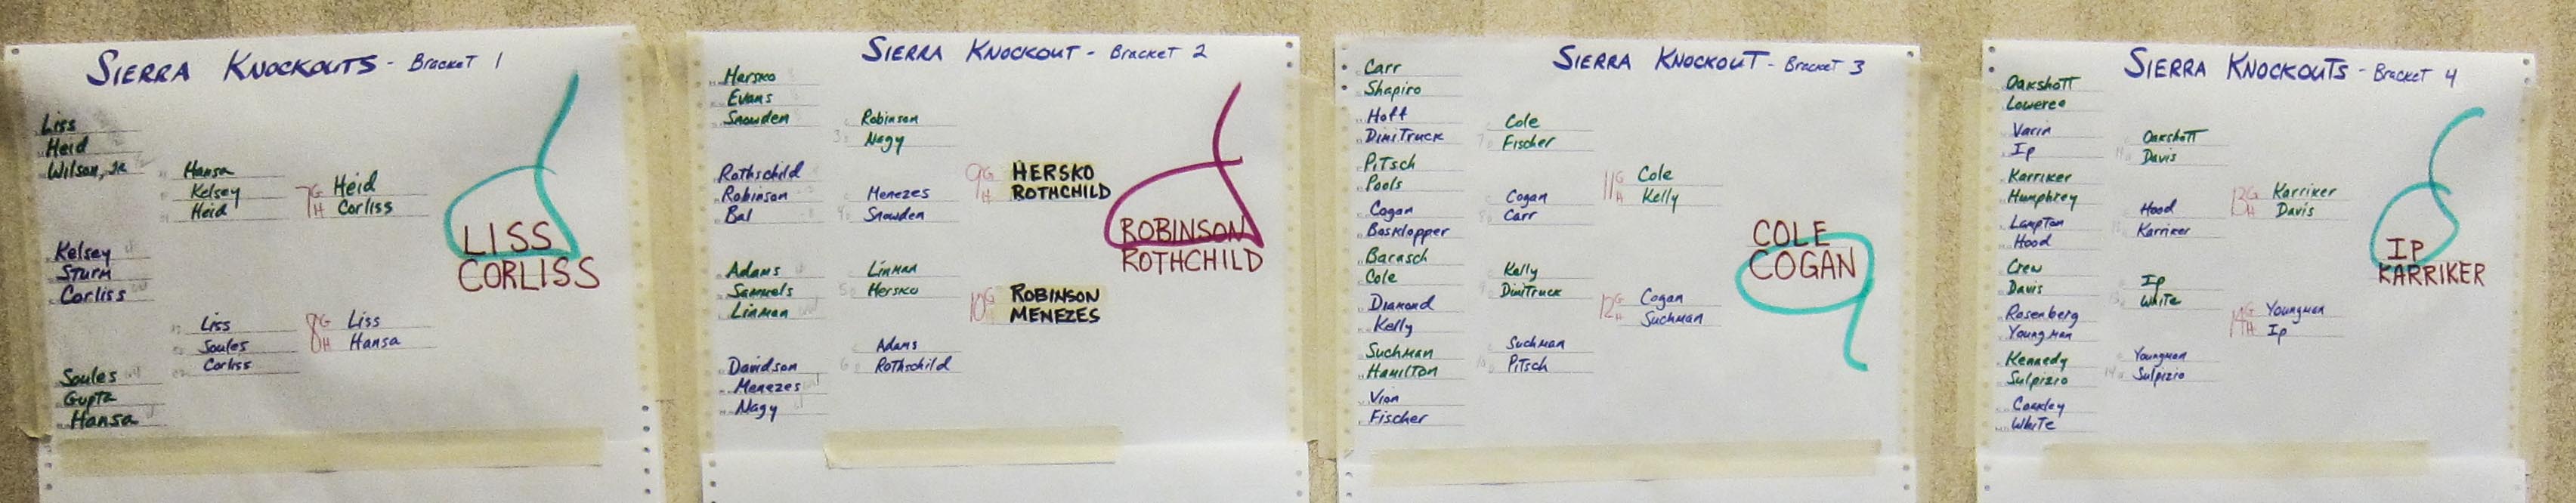 SIERRA KNOCKOUTS - Bracket 1
Liss
Heid
Wilson, Jr
Kelsey
Sturm
Corliss
Soules
Gupta
Hansa
Hansa
Kelsey
Heid
Liss
Soules
Corliss
7G Heid
H Corliss
8G Liss
H Hansa
LISS
CORLISS
SIERRA KNOCKOUT - Bracket 2
Hersko
Evans
Snowden
Rothschild
Robinson
Bal
Adams
Samuels
Linman
Davidson
Menezes
Nagy
Robinson
Nagy
Menezes
Snowden
Linman
Hersko
Adams
Rothschild
9G HERSKO
H ROTHCHILD
10G ROBINSON
H MENEZES
ROBINSON
ROTHCHILD
SIERRA KNOCKOUT - Bracket 3
Carr
Shapiro
Hoff
DimiTruck
Pitsch
Pools
Cogan
Bosklopper
Barasch
Cole
Diamond
Kelly
Suchman
Hamilton
Vion
Fischer
Cole
Fischer
Cogan
Carr
Kelly
DimiTruck
Suchman
Pitsch
11G Cole
H Kelly
12G Cogan
H Suchman
COLE
COGAN
SIERRA KNOCKOUTS - Bracket 4
Oakshott
Loweree
Varin
Ip
Karriker
Humphrey
Lampton
Hood
Crew
Davis
Rosenberg
Youngman
Kennedy
Sulpizio
Coakley
White
Oakshott
Davis
Hood
Karriker
Ip
White
Youngman
Sulpizio
13G Karriker
H Davis
14G Youngman
H Ip
IP
KARRIKER